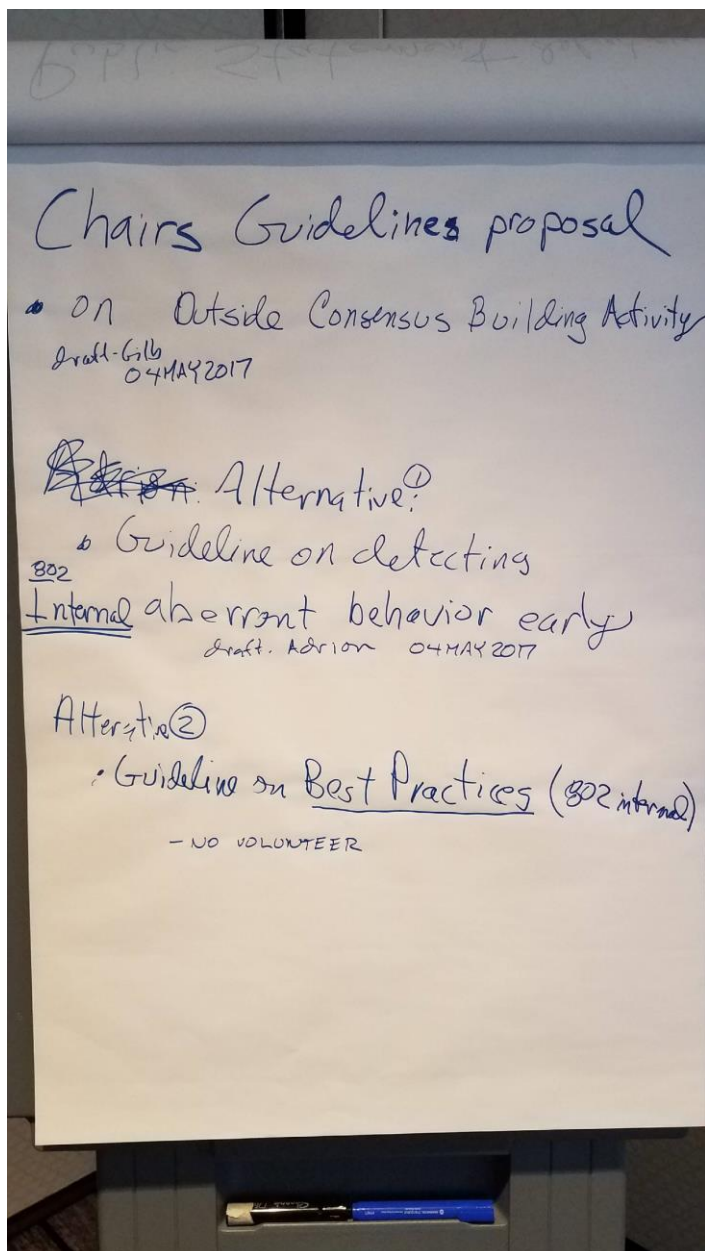 Public Statement
Chairs Guidelines proposal
• on Outside Consensus Building Activity
draft-Gilb
04MAY2017
Alternative① :
• Guideline on detecting
802
Internal aberrant behavior early
draft. Adrian 04MAY2017
Alternative②
• Guideline on Best Practices (802 internal)
- NO VOLUNTEER